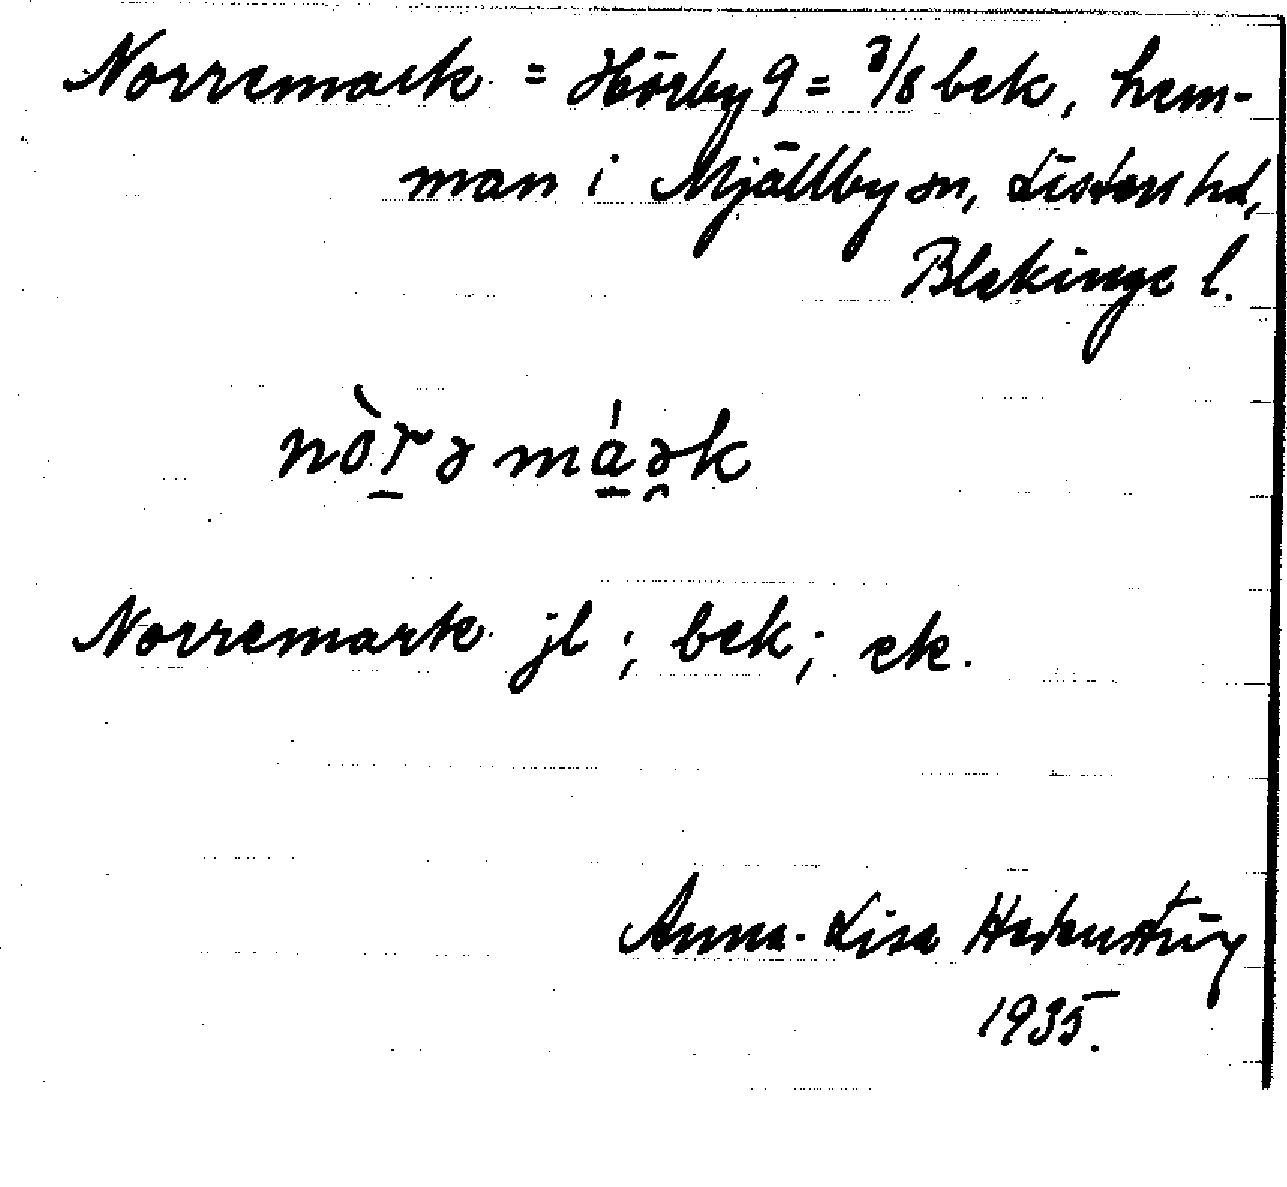 Norremark = Hörby 9 = 3/8 bek, hem-
man i Mjällby sn, Listers hd,
Blekinge l.
nòr̲ə má̲ə̯k
Norremark jl ; bek ; ek.
Anna-Lisa Hedenstüy
1935.